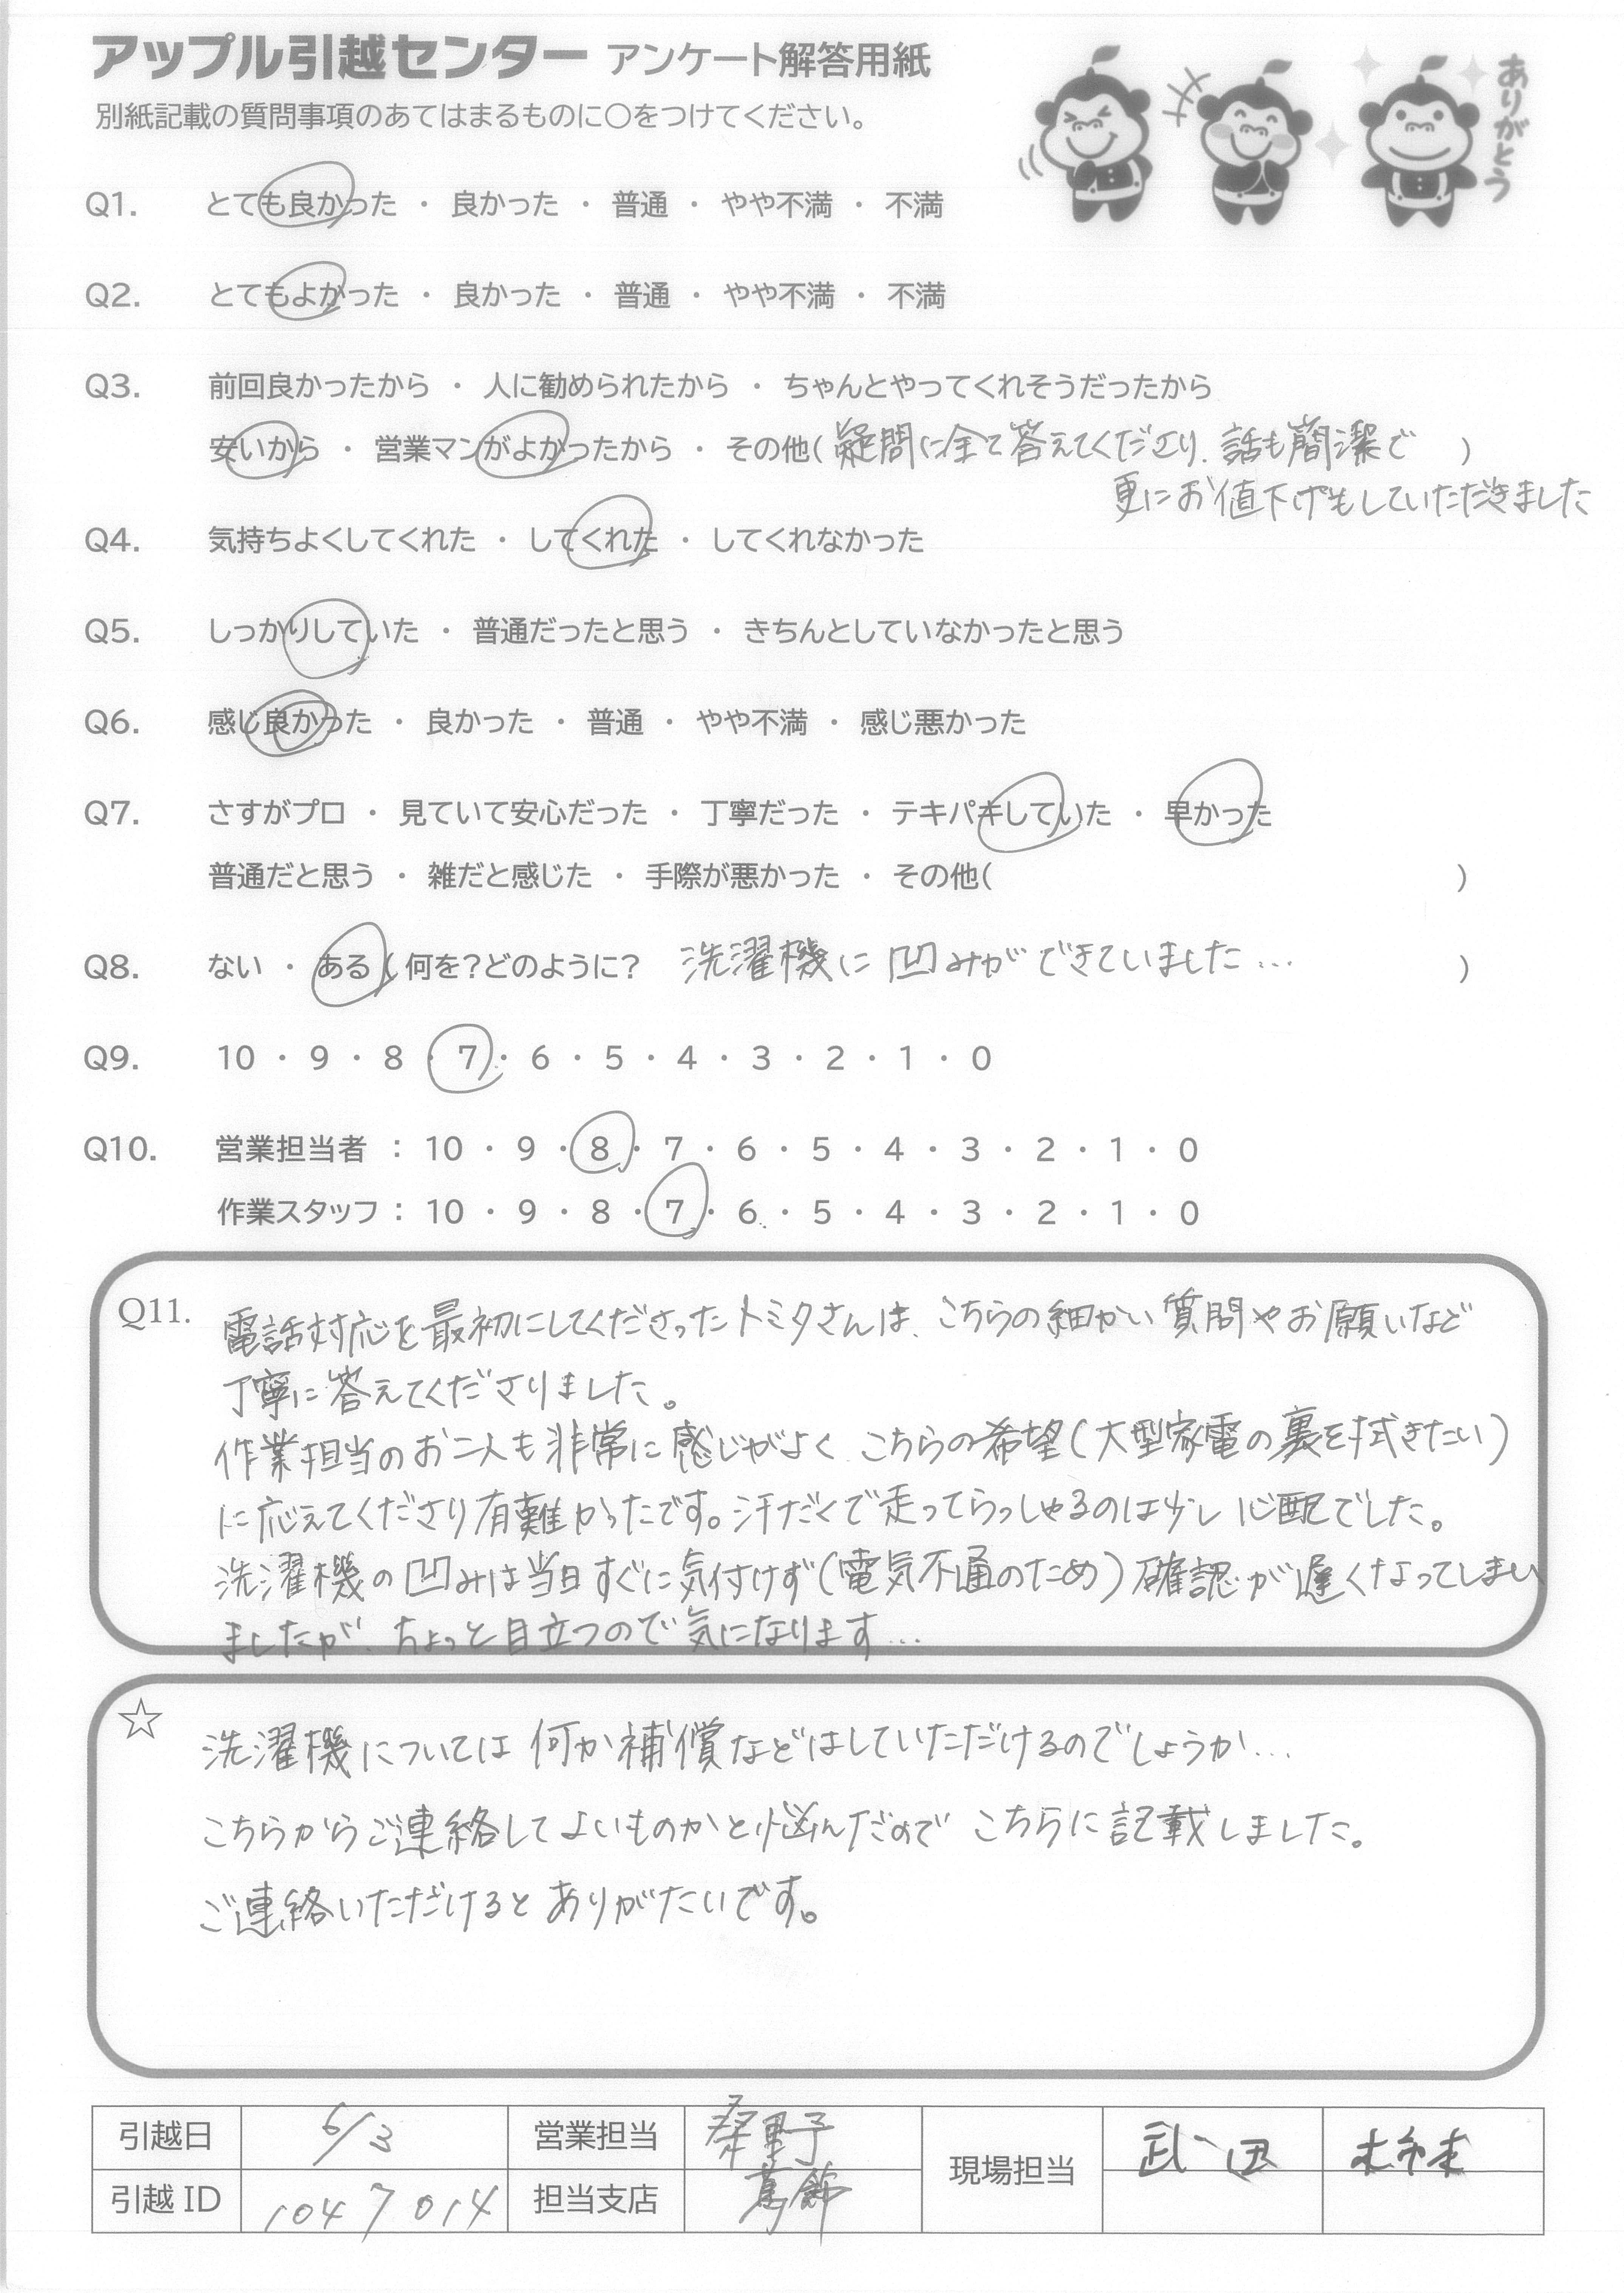 アップル引越センター アンケート解答用紙
別紙記載の質問事項のあてはまるものに○をつけてください。
ありがとう
Q1. とても良かった ・ 良かった ・ 普通 ・ やや不満 ・ 不満
Q2. とてもよかった ・ 良かった ・ 普通 ・ やや不満 ・ 不満
Q3. 前回良かったから ・ 人に勧められたから ・ ちゃんとやってくれそうだったから
安いから ・ 営業マンがよかったから ・ その他(疑問に全て答えてくださり、話も簡潔で )
更にお値下げもしていただきました
Q4. 気持ちよくしてくれた ・ してくれた ・ してくれなかった
Q5. しっかりしていた ・ 普通だったと思う ・ きちんとしていなかったと思う
Q6. 感じ良かった ・ 良かった ・ 普通 ・ やや不満 ・ 感じ悪かった
Q7. さすがプロ ・ 見ていて安心だった ・ 丁寧だった ・ テキパキしていた ・ 早かった
普通だと思う ・ 雑だと感じた ・ 手際が悪かった ・ その他( )
Q8. ない ・ ある ( 何を?どのように? 洗濯機に凹みができていました… )
Q9. 10 ・ 9 ・ 8 ・ 7 ・ 6 ・ 5 ・ 4 ・ 3 ・ 2 ・ 1 ・ 0
Q10. 営業担当者 : 10 ・ 9 ・ 8 ・ 7 ・ 6 ・ 5 ・ 4 ・ 3 ・ 2 ・ 1 ・ 0
作業スタッフ : 10 ・ 9 ・ 8 ・ 7 ・ 6 ・ 5 ・ 4 ・ 3 ・ 2 ・ 1 ・ 0
Q11. 電話対応を最初にしてくださったトミタさんは、こちらの細かい質問やお願いなど
丁寧に答えてくださりました。
作業担当のお二人も非常に感じがよく、こちらの希望(大型家電の裏を拭きたい)
に応えてくださり有難かったです。汗だくで走ってらっしゃるのは少し心配でした。
洗濯機の凹みは当日すぐに気付けず(電気不通のため)確認が遅くなってしまい
ましたが、ちょっと目立つので気になります…
☆ 洗濯機については何か補償などはしていただけるのでしょうか…
こちらからご連絡してよいものかと悩んだので こちらに記載しました。
ご連絡いただけるとありがたいです。
引越日 5/3 営業担当 桑野 現場担当 武田
引越ID 1047014 担当支店 葛飾